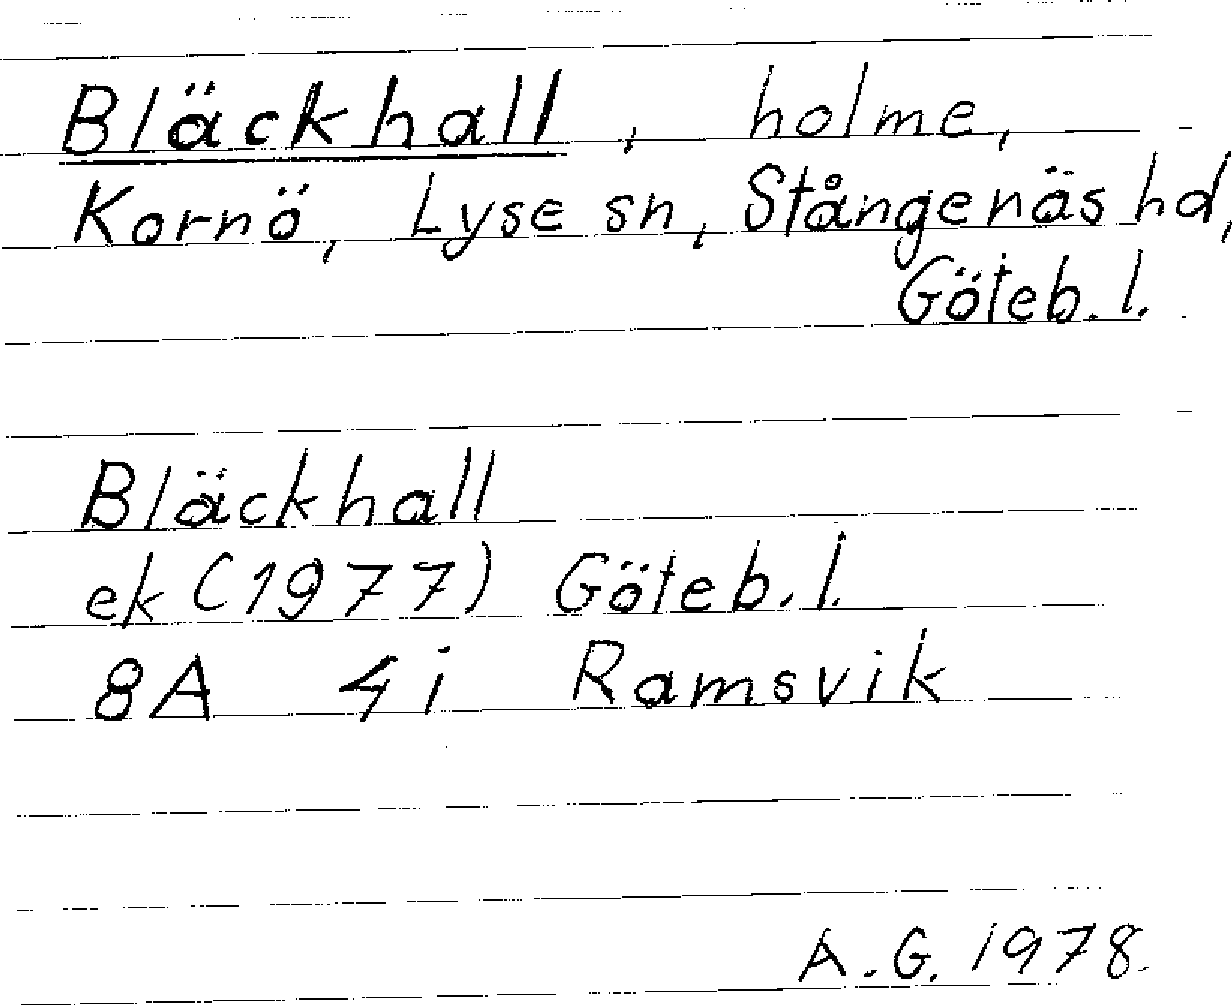 Bläckhall, holme,
Kornö, Lyse sn, Stångenäs hd,
Göteb. l.
Bläckhall
ek (1977) Göteb. l.
8A 4i Ramsvik
A.G. 1978.